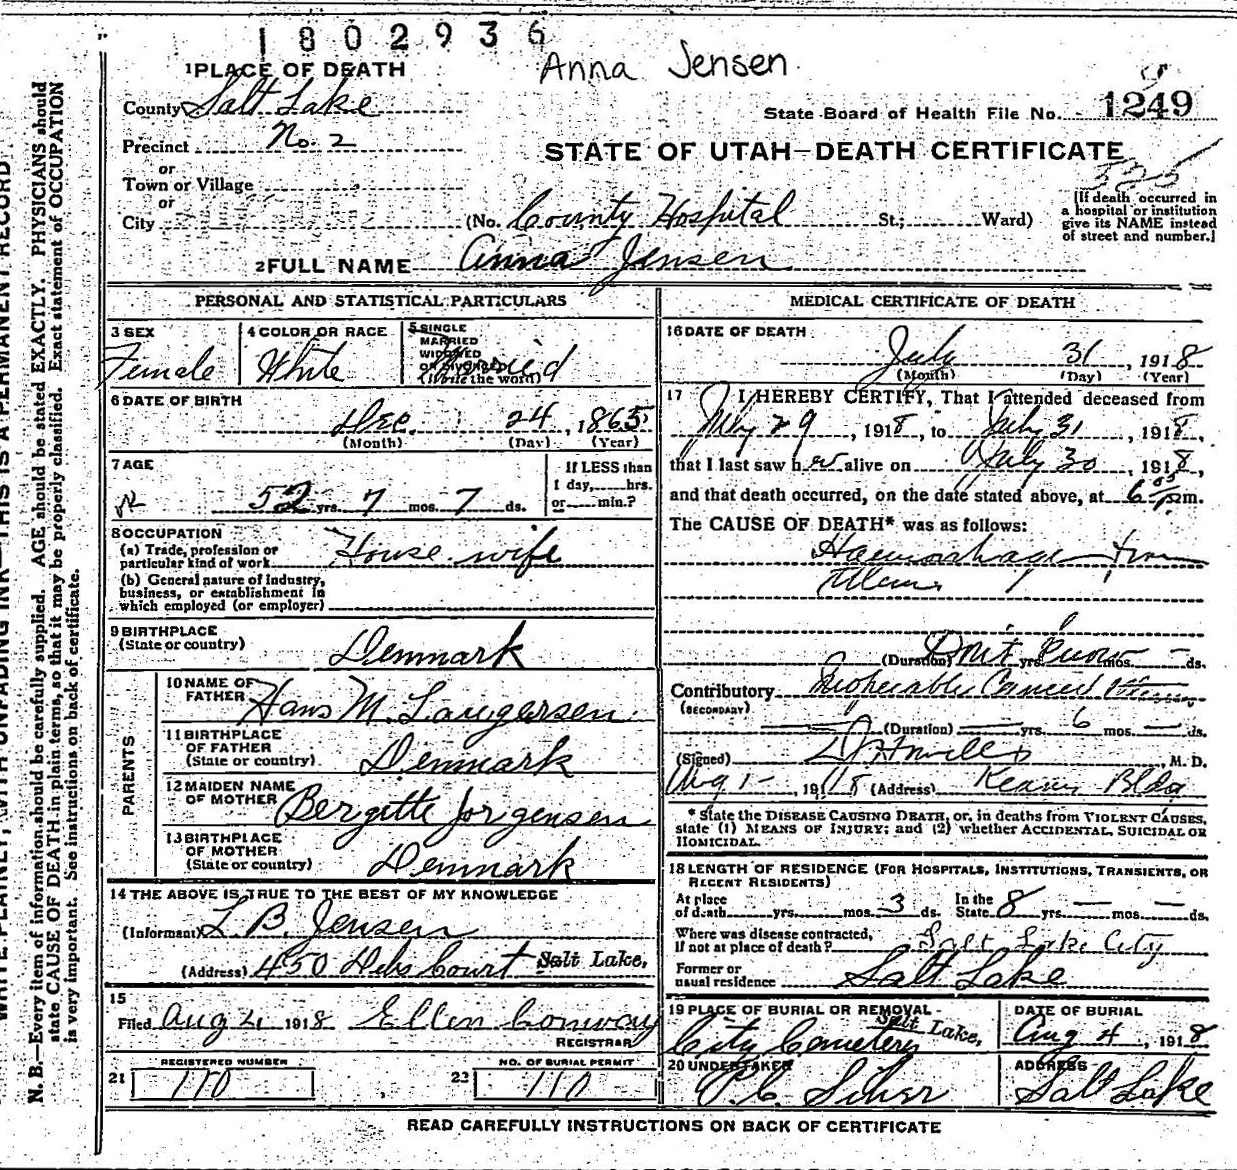 1802936
Anna Jensen
1 PLACE OF DEATH
County Salt Lake
State Board of Health File No. 1249
Precinct No. 2
STATE OF UTAH—DEATH CERTIFICATE
or
Town or Village
or
City
(No. County Hospital St.; Ward)
[If death occurred in
a hospital or institution
give its NAME instead
of street and number.]
2 FULL NAME Anna Jensen
PERSONAL AND STATISTICAL PARTICULARS
3 SEX
Female
4 COLOR OR RACE
White
5 SINGLE
MARRIED
WIDOWED
OR DIVORCED
(Write the word)
Married
6 DATE OF BIRTH
Dec. 24, 1865
(Month) (Day) (Year)
7 AGE
52 yrs. 7 mos. 7 ds.
If LESS than
1 day, hrs.
or min.?
8 OCCUPATION
(a) Trade, profession or
particular kind of work House wife
(b) General nature of industry,
business, or establishment in
which employed (or employer)
9 BIRTHPLACE
(State or country) Denmark
PARENTS
10 NAME OF
FATHER Hans M. Laugersen
11 BIRTHPLACE
OF FATHER
(State or country) Denmark
12 MAIDEN NAME
OF MOTHER Bergitte Jorgensen
13 BIRTHPLACE
OF MOTHER
(State or country) Denmark
14 THE ABOVE IS TRUE TO THE BEST OF MY KNOWLEDGE
(Informant) L. B. Jensen
(Address) 450 Court Salt Lake,
15
Filed Aug 4 1918 Ellen Conway
REGISTRAR
REGISTERED NUMBER
21 110
NO. OF BURIAL PERMIT
22 110
MEDICAL CERTIFICATE OF DEATH
16 DATE OF DEATH
July 31, 1918
(Month) (Day) (Year)
17 I HEREBY CERTIFY, That I attended deceased from
July 29, 1918, to July 31, 1918,
that I last saw her alive on July 30, 1918,
and that death occurred, on the date stated above, at 6 05 P.m.
The CAUSE OF DEATH* was as follows:
Haemorrhage from
(Duration) Don't Know yrs. mos. ds.
Contributory Inoperable Cancer
(SECONDARY)
(Duration) — yrs. 6 mos. — ds.
(Signed) , M. D.
Aug 1 - 1918 (Address) Kearns Bldg
* State the DISEASE CAUSING DEATH, or, in deaths from VIOLENT CAUSES,
state (1) MEANS OF INJURY; and (2) whether ACCIDENTAL, SUICIDAL OR
HOMICIDAL.
18 LENGTH OF RESIDENCE (FOR HOSPITALS, INSTITUTIONS, TRANSIENTS, OR
RECENT RESIDENTS)
At place
of death yrs. mos. 3 ds.
In the
State 8 yrs. — mos. — ds.
Where was disease contracted,
if not at place of death? Salt Lake City
Former or
usual residence Salt Lake
19 PLACE OF BURIAL OR REMOVAL
City Cemetery Salt Lake,
DATE OF BURIAL
Aug 4, 1918
20 UNDERTAKER
ADDRESS
Salt Lake
READ CAREFULLY INSTRUCTIONS ON BACK OF CERTIFICATE
WRITE PLAINLY, WITH UNFADING INK—THIS IS A PERMANENT RECORD
N. B.—Every item of information should be carefully supplied. AGE should be stated EXACTLY. PHYSICIANS should
state CAUSE OF DEATH in plain terms, so that it may be properly classified. Exact statement of OCCUPATION
is very important. See instructions on back of certificate.